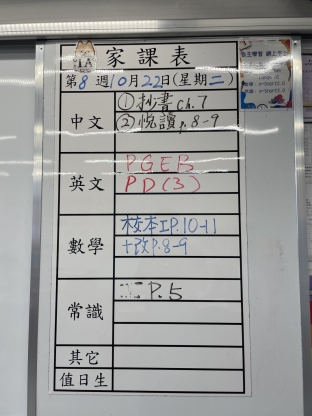 1A 家課表
第8週10月22日(星期二)
中文
①抄書ch.7
②悅讀p.8-9
英文
PGEB
PD(3)
數學
校本工P.10-11
+改P.8-9
常識
P.5
其它
值日生